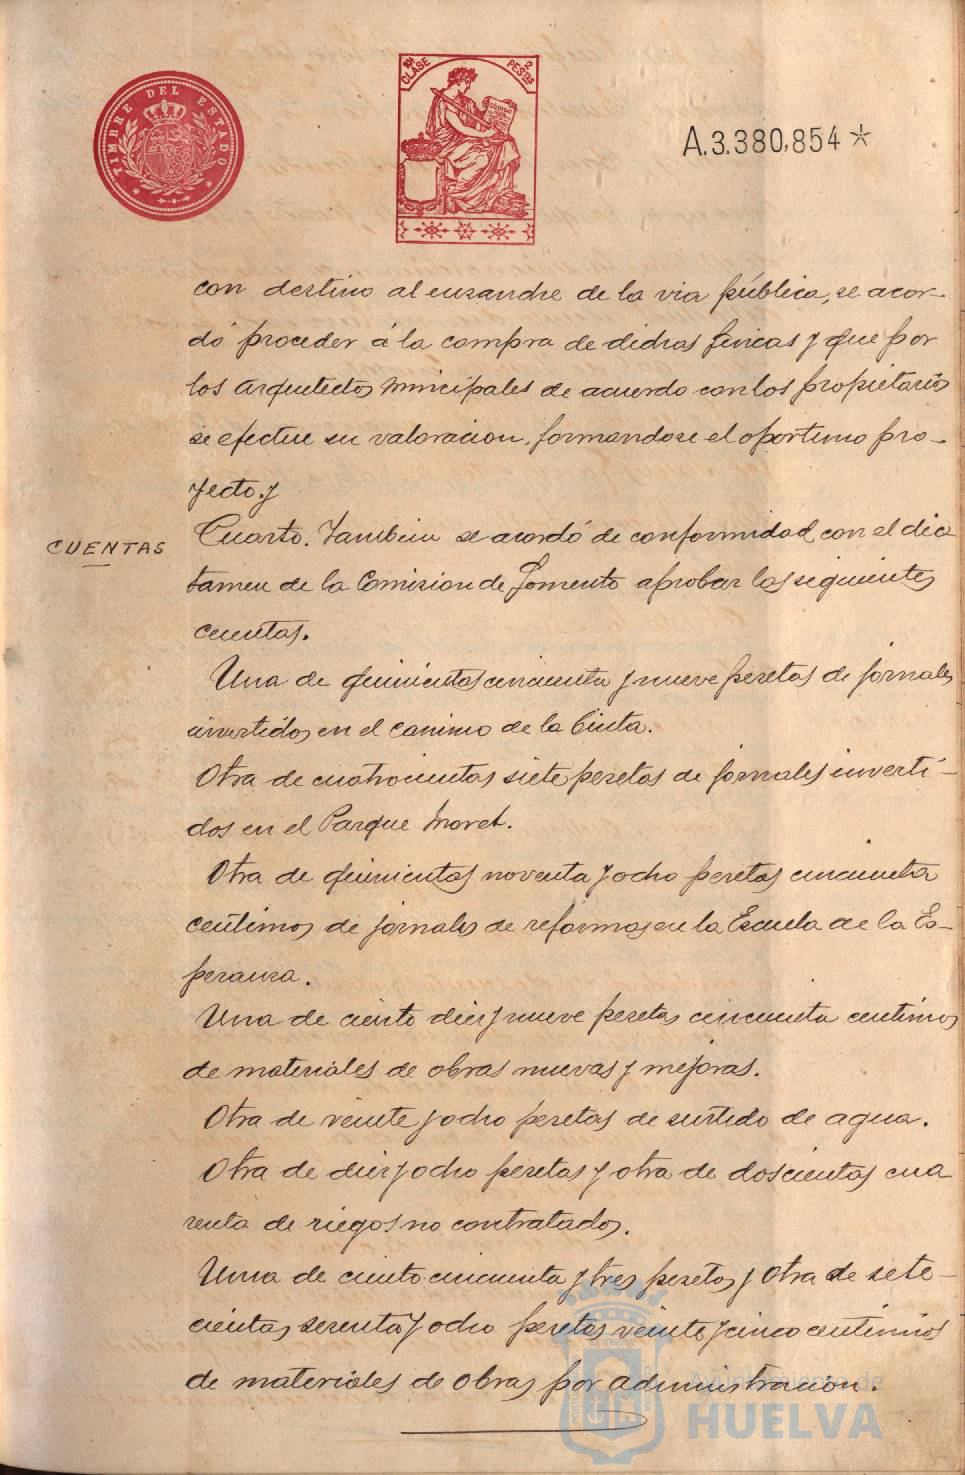 TIMBRE DEL ESTADO
10ª CLASE 2 PESTAS
CODIGO
A.3.380,854*
con destino al ensanche de la via pública, se acor-
dó proceder á la compra de dichas fincas y que por
los arquitectos municipales de acuerdo con los propietarios
se efectue su valoracion, formandose el oportuno pro-
yecto. y
CUENTAS
Cuarto. Tambien se acordó de conformidad con el dic
tamen de la Comision de Fomento aprobar las siguientes
cuentas.
Una de quinientas cincuenta y nueve pesetas de jornales
invertidos en el camino de la Cinta.
Otra de cuatrocientas siete pesetas de jornales inverti-
dos en el Parque Moret.
Otra de quinientas noventa y ocho pesetas cincuenta
centimos de jornales de reformas en la Escuela de la Es-
peranza.
Una de ciento diez y nueve pesetas cincuenta centimos
de materiales de obras nuevas y mejoras.
Otra de veinte y ocho pesetas de surtido de agua.
Otra de diez y ocho pesetas y otra de doscientas cua
renta de riegos no contratados.
Una de ciento cincuenta y tres pesetas y otra de sete-
cientas sesenta y ocho pesetas veinte y cinco centimos
de materiales de obras por administracion.
Ayuntamiento de
HUELVA